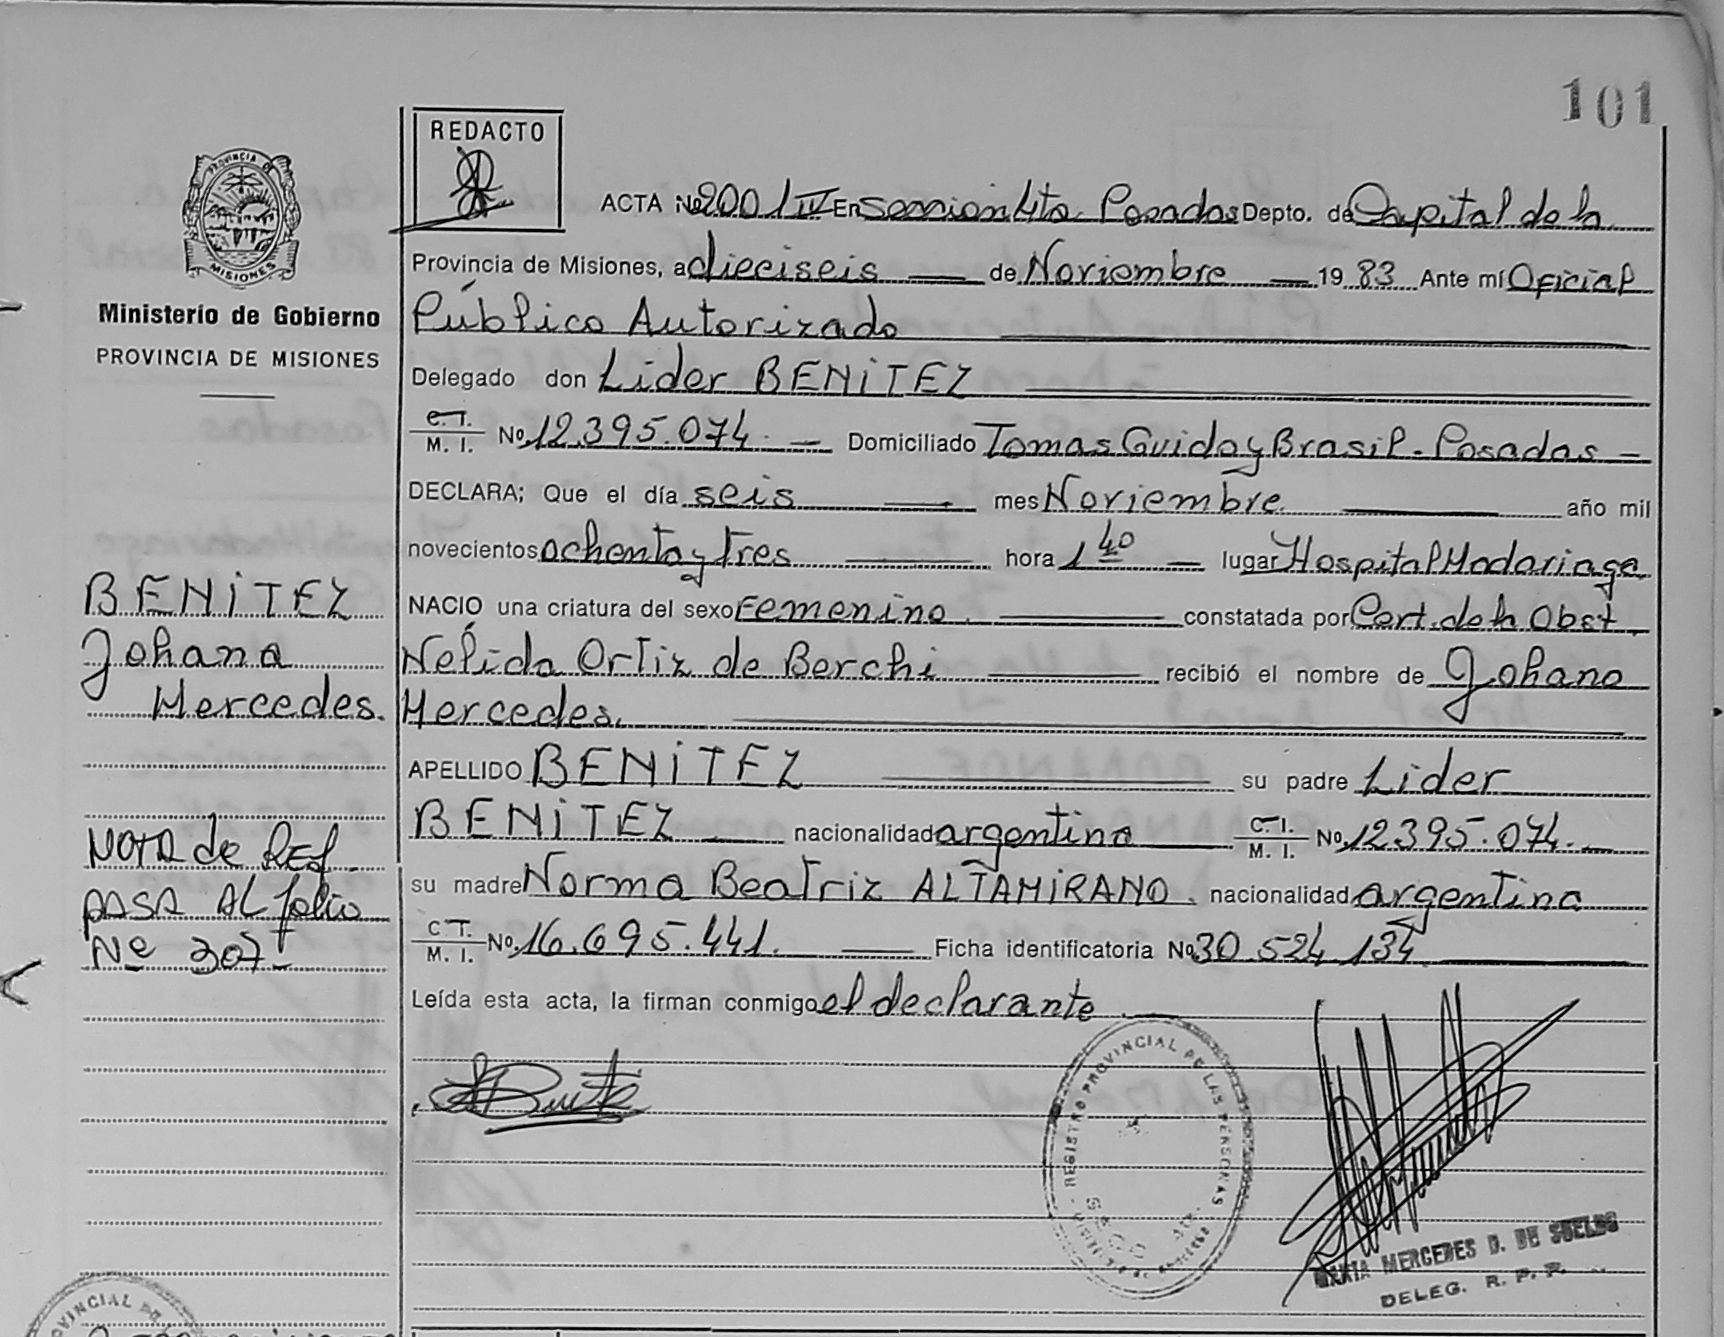 101
REDACTO
ACTA Nº 200/IV En Seccion 4ta. Posadas Depto. de Capital de la
Provincia de Misiones, a dieciseis de Noviembre 19 83 Ante mí Oficial
Público Autorizado
Delegado don Lider BENITEZ
C.I. M.I. Nº 12.395.074. Domiciliado Tomas Guido y Brasil - Posadas -
DECLARA; Que el día seis mes Noviembre año mil
novecientos ochenta y tres hora 1 40 lugar Hospital Madariaga
NACIO una criatura del sexo Femenino. constatada por Cert. de la Obst.
Nelida Ortiz de Berchi recibió el nombre de Johana
Mercedes.
APELLIDO BENITEZ su padre Lider
BENITEZ nacionalidad argentina C.I. M.I. Nº 12395.074.
su madre Norma Beatriz ALTAMIRANO. nacionalidad argentina
C.I. M.I. Nº 16.695.441. Ficha identificatoria Nº 30.524.134
Leída esta acta, la firman conmigo el declarante
PROVINCIA DE MISIONES
Ministerio de Gobierno
PROVINCIA DE MISIONES
BENITEZ
Johana
Mercedes.
NOTA de REF
PASA AL folio
Nº 207
REGISTRO PROVINCIAL DE LAS PERSONAS
MARIA MERCEDES D. DE SUELDO
DELEG. R. P. P.
VINCIAL DE